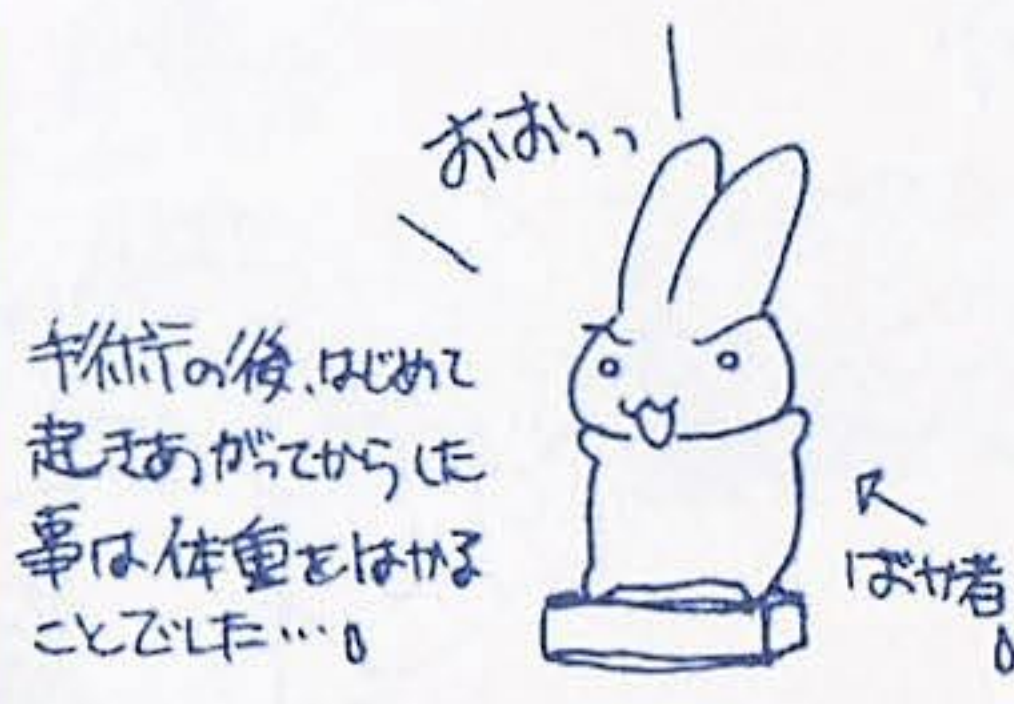 おおっっ
手術の後、はじめて
起きあがってからした
事は体重をはかる
ことでした…。
ばか者。